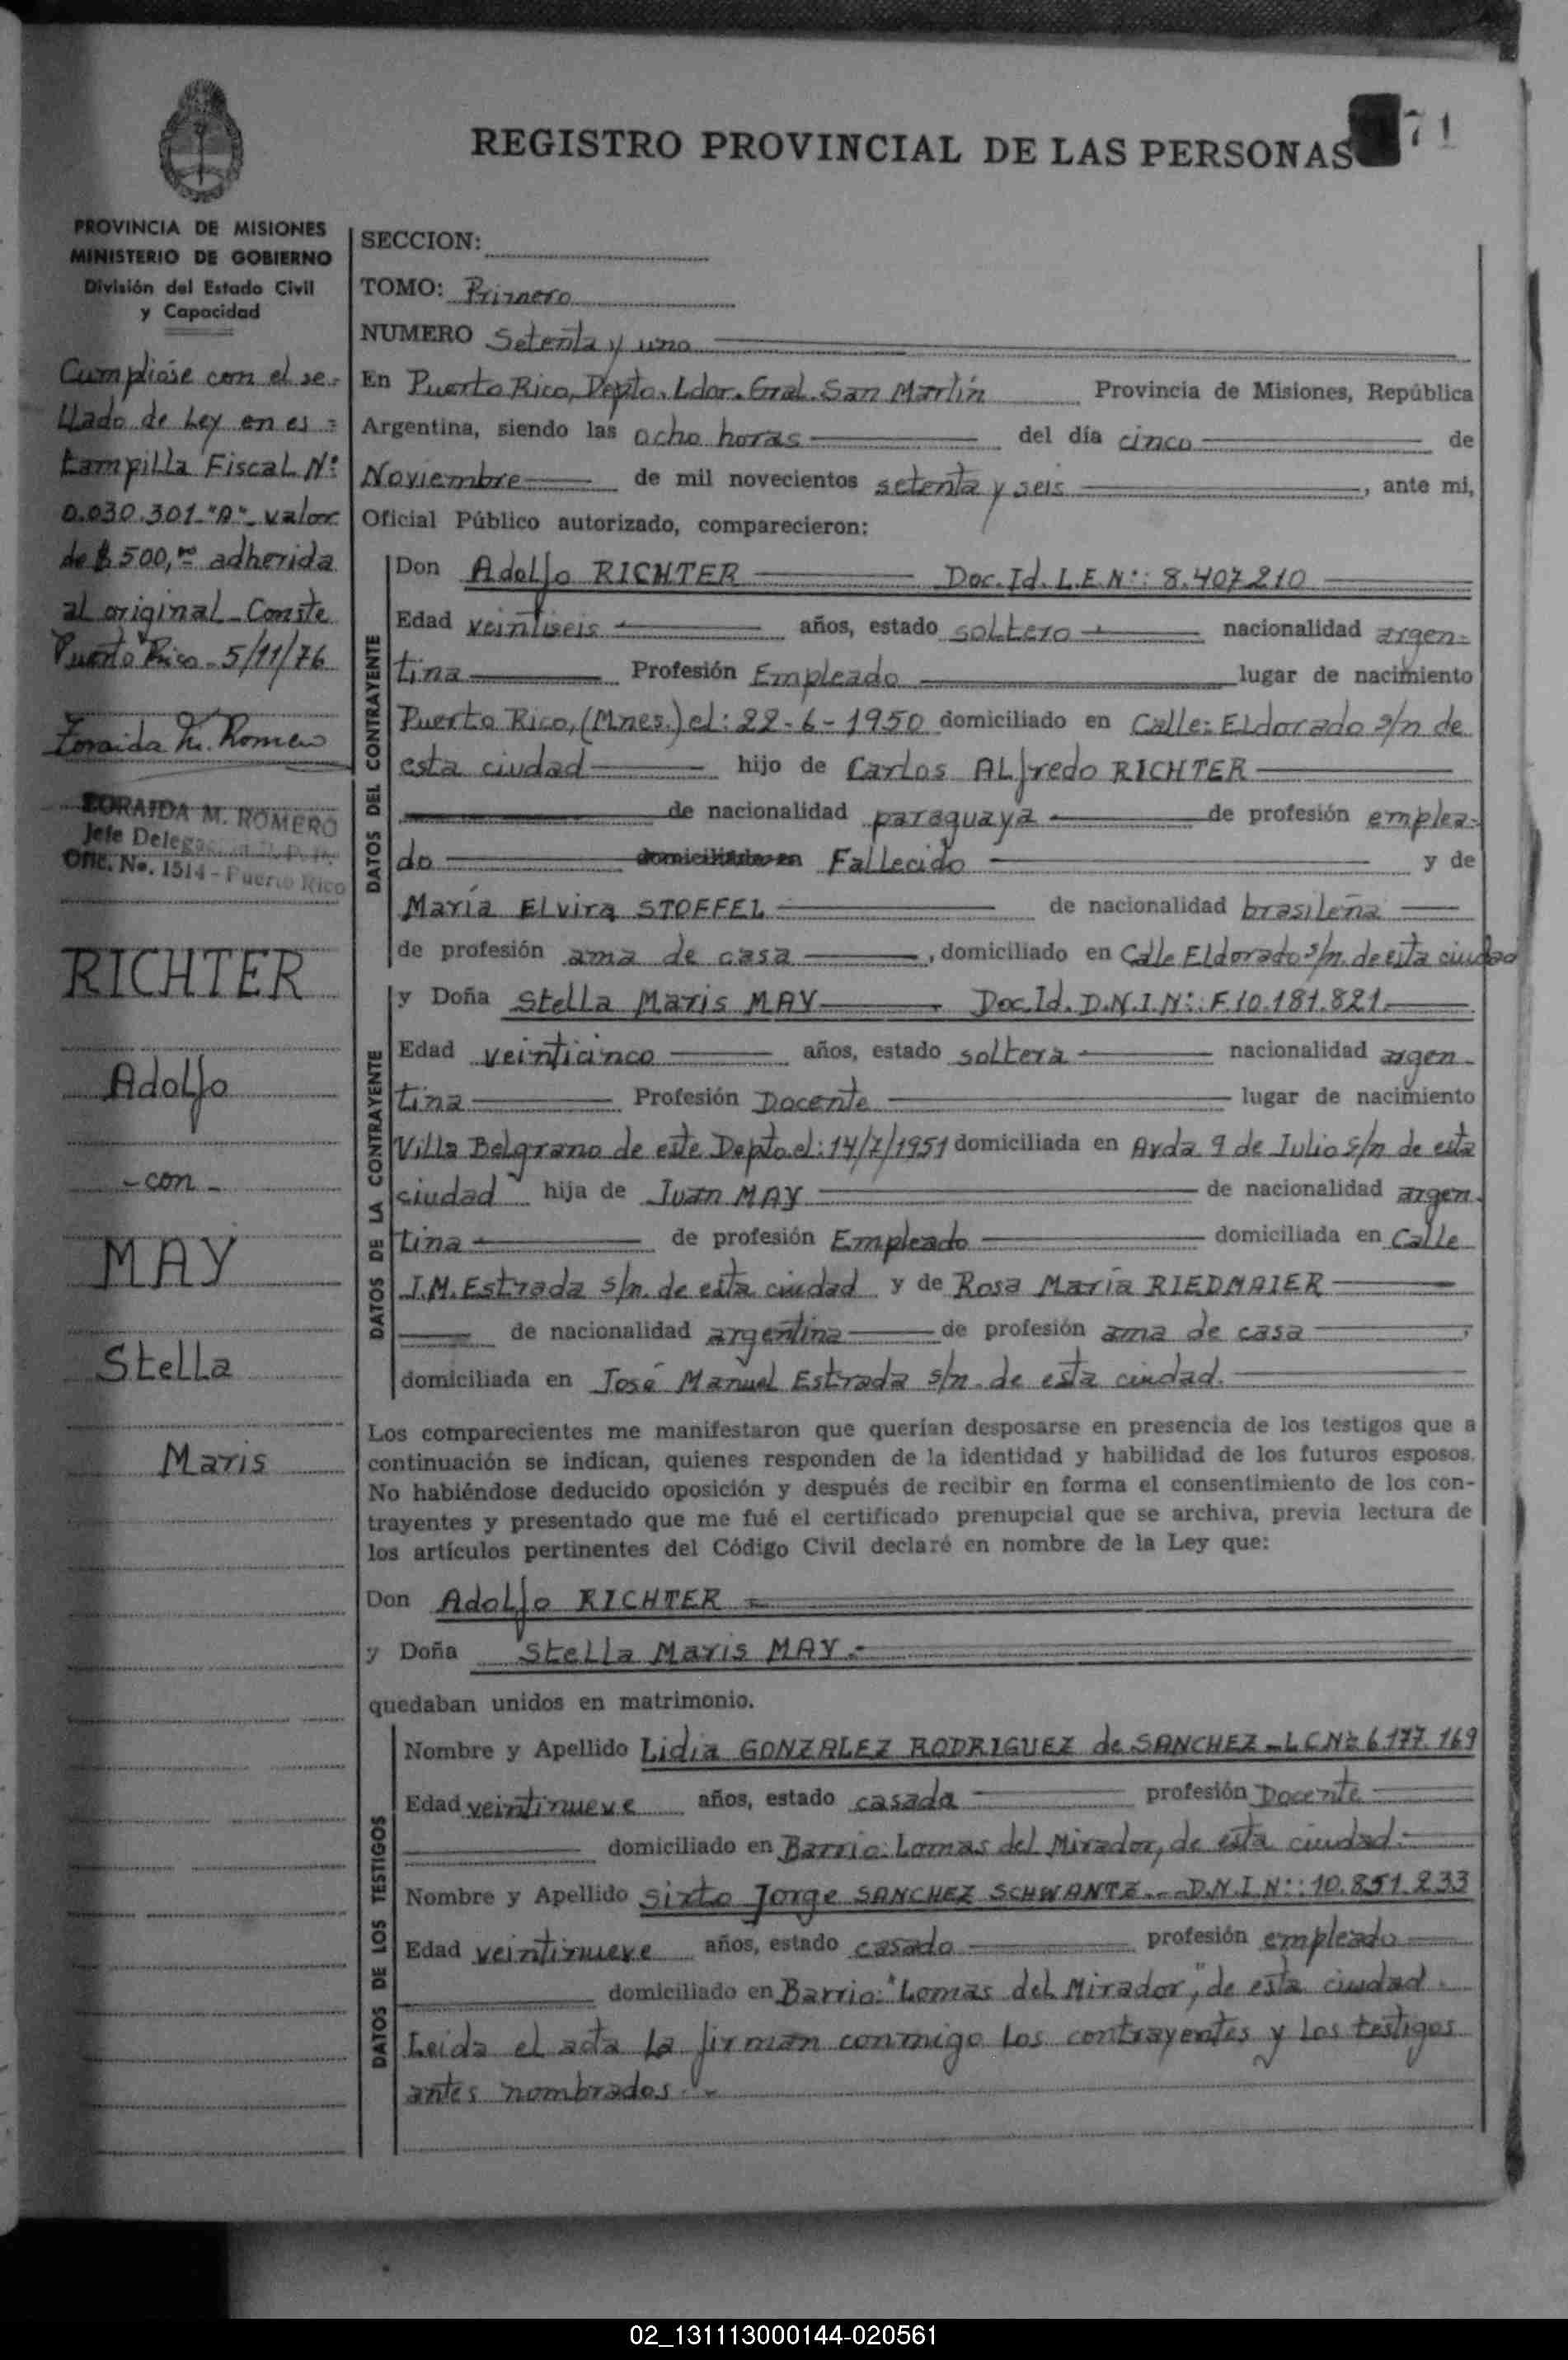 REGISTRO PROVINCIAL DE LAS PERSONAS
71
PROVINCIA DE MISIONES
MINISTERIO DE GOBIERNO
División del Estado Civil
y Capacidad
Cumplióse con el se-
llado de Ley en es=
tampilla Fiscal Nº
0.030.301-"A"- valor
de $ 500,00 adherida
al original - Conste
Puerto Rico - 5/11/76
Zoraida M. Romero
ZORAIDA M. ROMERO
Jefe
Ofic. No. 1514 - Puerto Rico
RICHTER
Adolfo
- con -
MAY
Stella
Maris
SECCION:
TOMO: Primero
NUMERO Setenta y uno
En Puerto Rico, Depto. Ldor. Gral. San Martín Provincia de Misiones, República
Argentina, siendo las ocho horas del día cinco de
Noviembre de mil novecientos setenta y seis, ante mi,
Oficial Público autorizado, comparecieron:
DATOS DEL CONTRAYENTE
Don Adolfo RICHTER Doc. Id. L.E.Nº: 8.407.210
Edad veintiseis años, estado soltero nacionalidad argen-
tina Profesión Empleado lugar de nacimiento
Puerto Rico, (Mnes.) el: 22-6-1950 domiciliado en Calle: Eldorado s/n de
esta ciudad hijo de Carlos ALfredo RICHTER
de nacionalidad paraguaya de profesión emplea-
do domiciliado en Fallecido y de
María Elvira STOFFEL de nacionalidad brasileña
de profesión ama de casa, domiciliado en Calle Eldorado s/n. de esta ciudad
DATOS DE LA CONTRAYENTE
y Doña Stella Maris MAY Doc. Id. D.N.I.Nº: F.10.181.821.
Edad veinticinco años, estado soltera nacionalidad argen-
tina Profesión Docente lugar de nacimiento
Villa Belgrano de este Depto el: 14/7/1951 domiciliada en Avda 9 de Julio s/n de esta
ciudad hija de Juan MAY de nacionalidad argen-
tina de profesión Empleado domiciliada en Calle
J.M. Estrada s/n. de esta ciudad y de Rosa María RIEDMAIER
de nacionalidad argentina de profesión ama de casa,
domiciliada en José Manuel Estrada s/n. de esta ciudad.
Los comparecientes me manifestaron que querían desposarse en presencia de los testigos que a
continuación se indican, quienes responden de la identidad y habilidad de los futuros esposos.
No habiéndose deducido oposición y después de recibir en forma el consentimiento de los con-
trayentes y presentado que me fué el certificado prenupcial que se archiva, previa lectura de
los artículos pertinentes del Código Civil declaré en nombre de la Ley que:
Don Adolfo RICHTER
y Doña Stella Maris MAY.
quedaban unidos en matrimonio.
DATOS DE LOS TESTIGOS
Nombre y Apellido Lidia GONZALEZ RODRIGUEZ de SANCHEZ - L C Nº 6.177.169
Edad veintinueve años, estado casada profesión Docente
domiciliado en Barrio: Lomas del Mirador, de esta ciudad.
Nombre y Apellido Sixto Jorge SANCHEZ SCHWANTZ - D.N.I Nº: 10.851.233
Edad veintinueve años, estado casado profesión empleado
domiciliado en Barrio: "Lomas del Mirador," de esta ciudad.
Leida el acta la firman conmigo los contrayentes y los testigos
antes nombrados.-
02_131113000144-020561